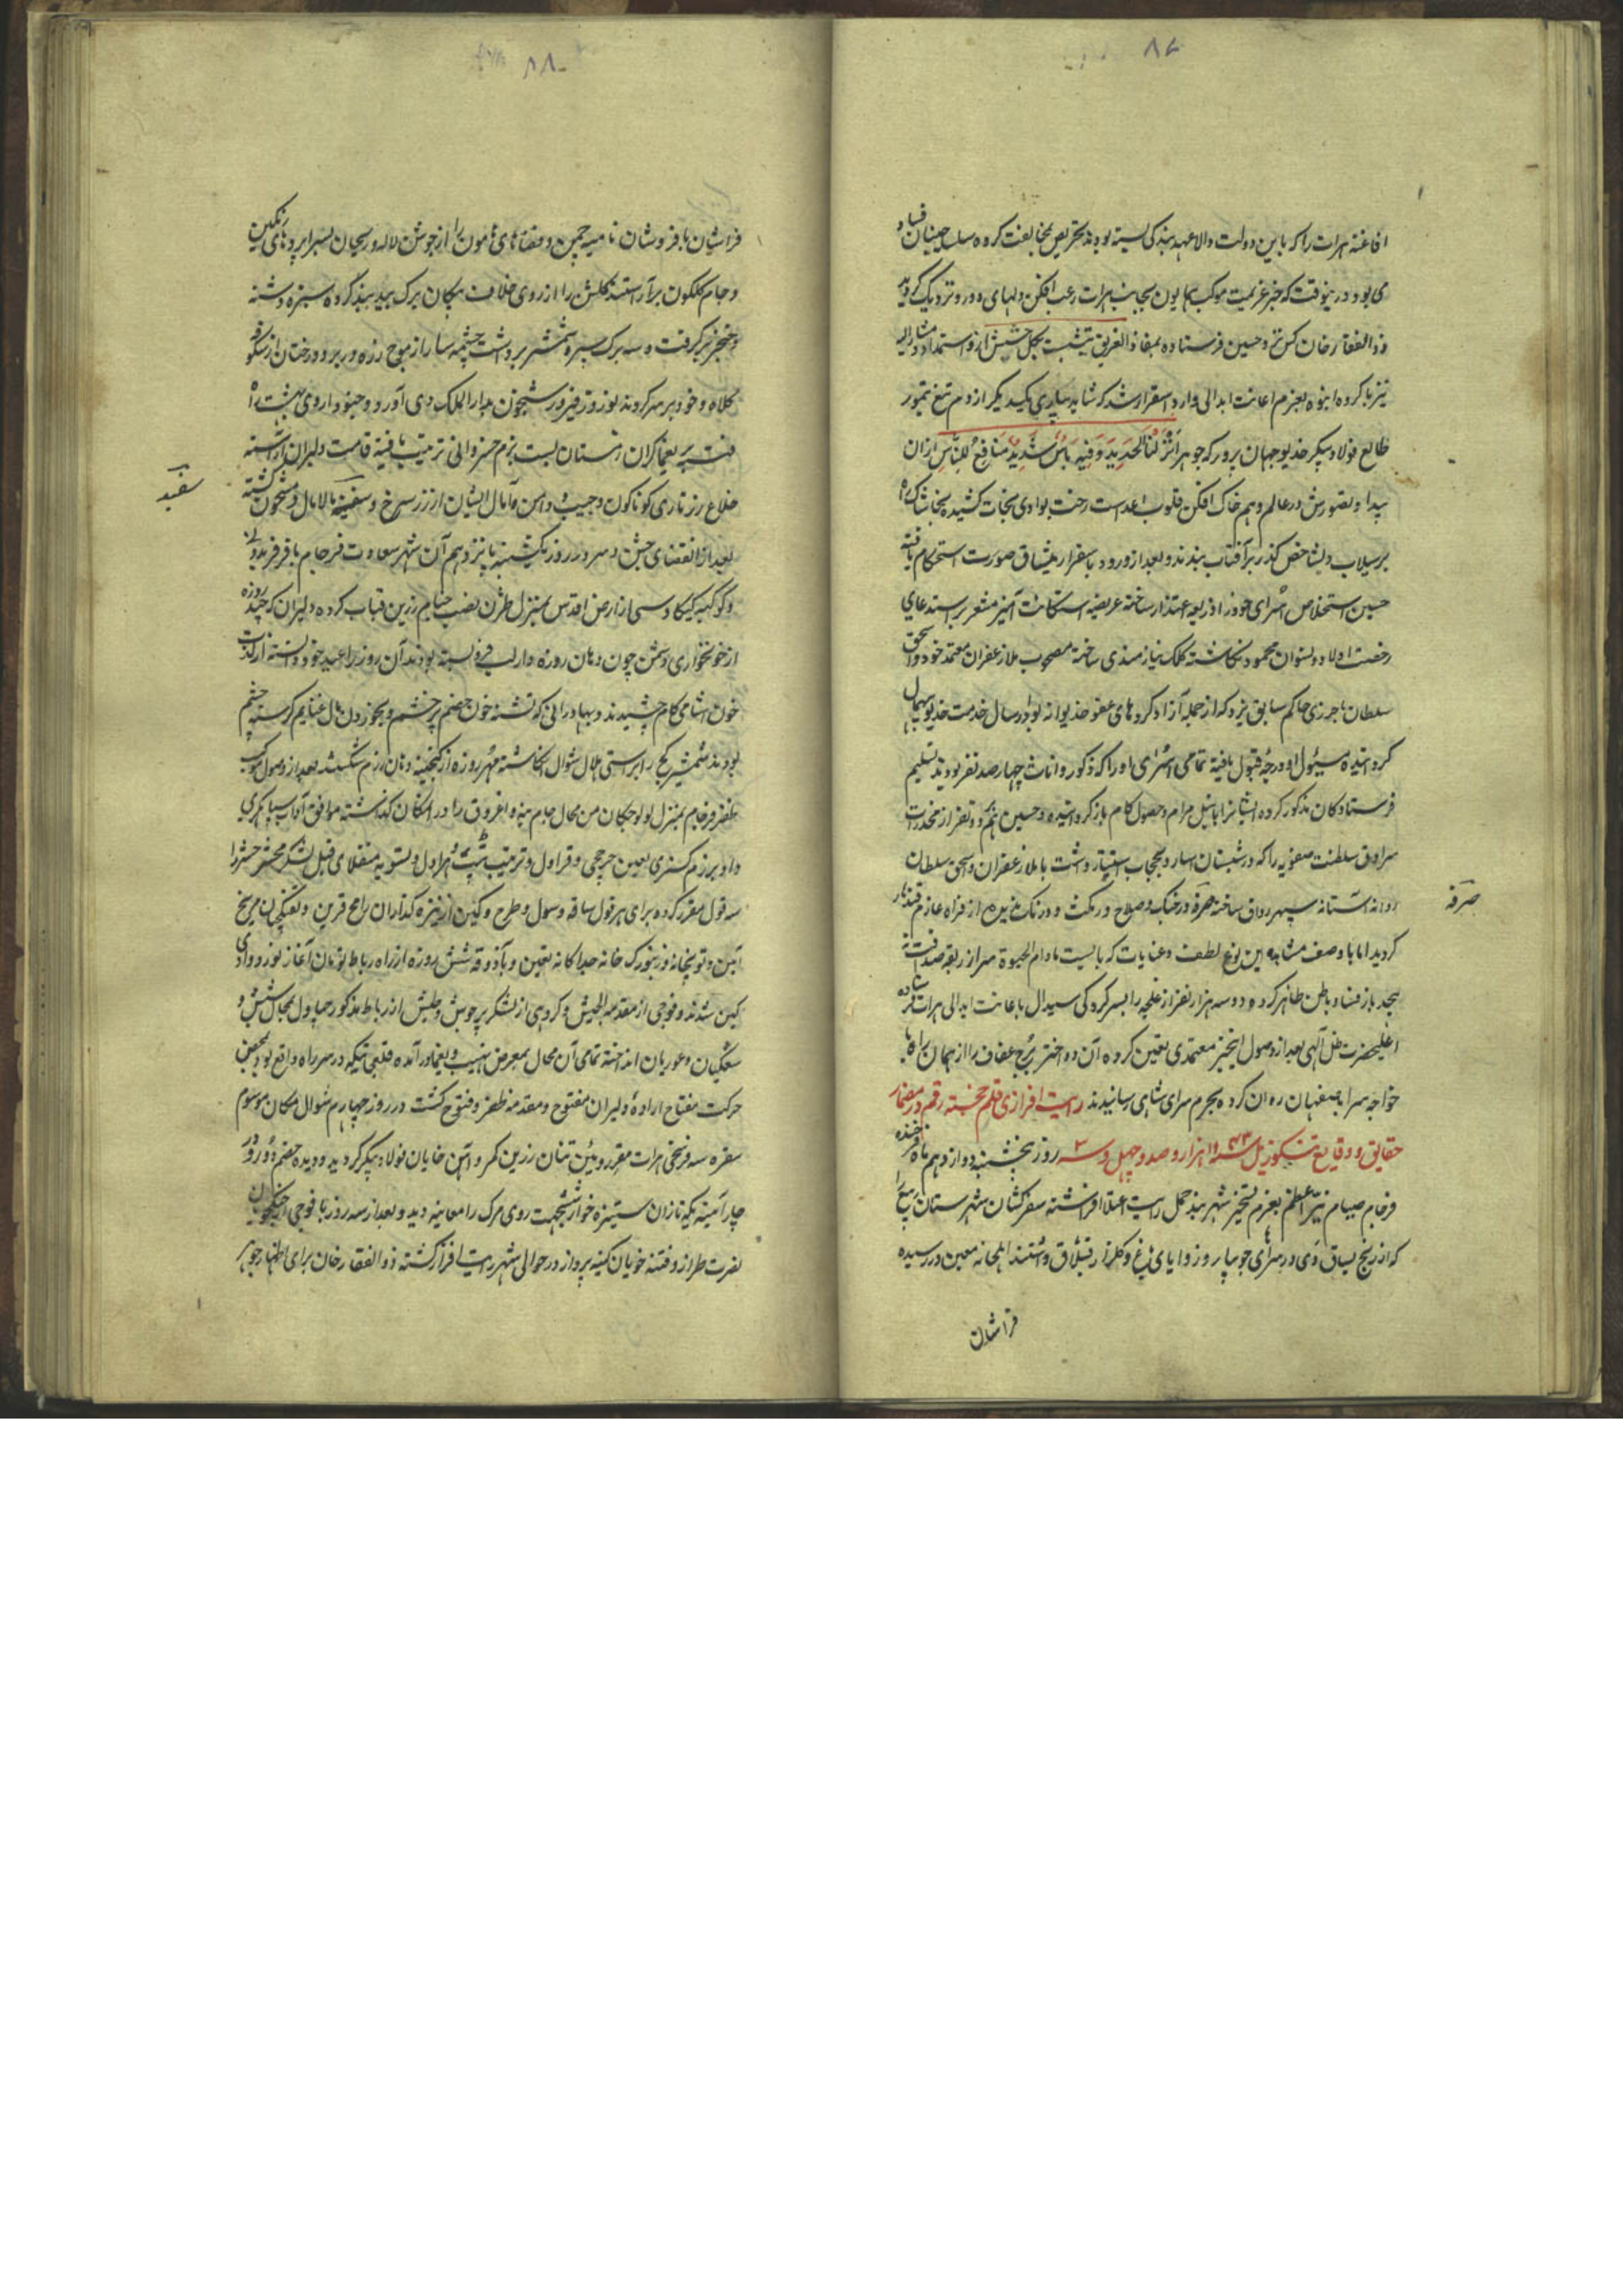 ۸۷
افاغنه هرات را که باین دولت والا عهد بندگی بسته بودند بتحریص مخالفت کرده سلسله جنبان فساد
می‌بود درینوقت که خبر عزیمت موکب همایون بجانب هرات رعب افکن دلهای دور و نزدیک گردید
ذوالفقار خان کس نزد حسین فرستاده بمفاد الغریق یتشبث بکل حشیش ازو استمداد و مشارالیه
نیز با گروه انبوه بعزم اعانت ابدالی وارد اسفزار شد که شاید بیاری یکدیگر از دم تیغ تیمور
طالع فولاد پیکر خدیو جهان پرور که جوهر انزلنا الحدید و فیه باس شدید و منافع للناس ازان
پیدا و تصورش در عالم وهم خاک افکن قلوب اعداست رخت بوادی نجات کشیده بخاشاک راه
بر سیلاب و بشاخص گذر بر آفتاب بندند و بعد از ورود باسفزار میثاق صورت استحکام یافته
حسین استخلاص اسرای خود را ذریعه اعتذار ساخته عریضه استکانت آمیز مشعر بر استدعای
رخصت اولاد و نسوان محمود نگاشته کلک نیازمندی ساخته مصحوب ملا زعفران معتمد خود و اسحق
سلطان ناجرزی حاکم سابق یزد که از جمله آزاد کرده‌های عفو خدیوانه بود ارسال خدمت خدیو بیهمال
گردانیده مسئول او درجه قبول یافته تمامی اسرای او را که ذکور و اناث چهارصد نفر بودند تسلیم
فرستادگان مذکور کرده ایشانرا با نیل مرام و حصول کام باز گردانیده و حسین هم دو نفر از مخدرات
سرادق سلطنت صفویه را که در شبستان اسار و حجاب استتار داشت با ملا زعفران و اسحق سلطان
روانه آستانه سپهر رواق ساخته صرفه در جنگ و صلاح در مکث و درنگ ندیده از فراه عازم قندهار
صرفه
گردید اما با وصف مشاهده این نوع لطف و عنایات که بایست مادام الحیوة سر از ربقه صداقت نه
پیچد باز فساد باطن ظاهر کرده دو سه هزار نفر از غلجه را بسرکردگی سیدال باعانت ابدالی هرات فرستاده
اعلیحضرت ظل آلهی بعد از وصول اینخبر معتمدی تعیین کرده آن دو اختر برج عفاف را از همان راه با
خواجه سرا باصفهان روان کرده بحرم سرای شاهی رسانیدند رایت افرازی قلم خجسته رقم در مضمار
حقایق و وقایع تنکوزئیل سنه ۱۱۴۳ هزار و صد و چهل و سه روز پنجشنبه دوازدهم ماه فرخنده
فرجام صیام نیر اعظم بعزم تسخیر شهربند حمل رایت اعتلا افراشته سفرکشان شهرستان ربیع را
که از رنج یساق دی در سرای جویبار و زوایای باغ و گلزار قشلاق داشتند ایلجانه معین در رسیده
فراشان
۸۸
فراشان با فر و شان نامیه چمن و فضاهای هامون را از جوش لاله و ریحان بسراپرده‌های رنگین
و جام گلگون برآراستند گلبن را از روی خلافت پیکان برگ بید بید گروه سبزه دشنه
و خنجر برگرفت و سه برگ سپر و شمشیر برداشت چشمه سار از موج زره در بر و درختان از شکوفه
کلاه و خود بر سر کردند نوروز فیروز شبیخون بدارالملک دی آورد و جنود اردی بهشت راه
فتنه بر یغماگران زمستان بست بزم خسروانی ترتیب یافته قامت دلیران آراسته
خلاع زرتاری گوناگون و جیب و دامن آمال ایشان از زر سرخ و سفید مالامال و مشحون گشته
سفید
بعد از انقضای جشن و سرور روز یکشنبه پانزدهم آن شهر سعادت فرجام با فر فریدونی
و کوکبه کیکاوسی از ارض اقدس بمنزل طرق نصب خیام زرین قباب کرده دلیران که چند روزه
از خونخواری دشمن چون دهان روزه دار لب فرو بسته بودند آن روز را عید خود دانسته از لذت
خون آشامی کام چشیدند و بهادرانی که تشنه خون خصم پر خشم و بخوردن مال غنایم گرسنه چشم
بودند شمشیر کج را براستی هلال شوال انگاشته مهر روزه از گنجینه دهان رزم شکستند بعد از وصول موکب
ظفر فرجام بمنزل لولوجکان من محال جام بنه و اغروق را در آنمکان گذاشته موافق آداب سپاهگری
داد بر رزم گستری تعیین چرخچی و قراول و ترتیب هراول و تسویه منقلای قبل لشکر محشر حشر را
سه قول مقرر کرده برای هر قول ساقه و سول و طرح و کمین از نیزه گذاران رامح قرین و تفنگچیان مریخ
آیین و توپخانه و زنبورک خانه جداگانه تعیین و با آذوقه شش روزه از راه رباط تومان آغاز نورد وادی
کین شدند و فوجی از مقدمه الجیش و گروهی از لشکر پرجوش و طیش از رباط مذکور بچاول محال شش و
سنگیان و غوریان انداخته تمامی آن محال بمعرض نهیب و یغما در آمده قلعجاتیکه در سر راه واقع بود بمحض
حرکت مفتاح اراده دلیران مفتوح و مقدمه ظفر و فتوح گشت در روز چهارم شوال مکان موسوم
سقره سه فرسخی هرات مقر رویین تنان زرین کمر و آتش خایان فولاد پیکر گردید و دیده خصم دو رو
چار آینه یکه تازان ستیزه خو از ششجهت روی مرگ را معاینه دید و بعد از سه روز با فوجی از جنگجویان
نصرت طراز و فتنه خویان کینه پرداز در حوالی شهر رایت افراز گشته ذوالفقار خان برای اظهار جوهر